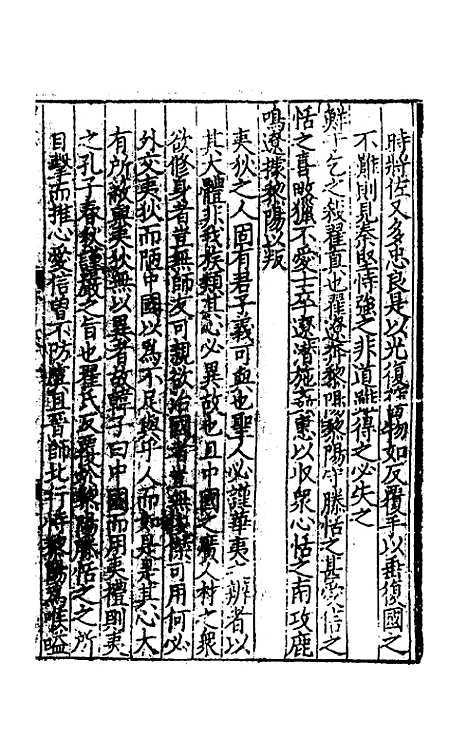 時將佐又多忠良是以光復舊物如反覆手以垂復國之
不難則見秦堅恃強之非道雖得之必失之
鮮于乞之殺翟真也翟遼奔黎陽黎陽守滕恬之甚愛信之
恬之喜畋獵不愛士卒遼潛施惠以収衆心恬之南攻鹿
鳴遼據黎陽以叛
夷狄之人固有君子義可與也聖人必謹華夷之辨者以
其大體非我族類其心必異故也且中國之廣人材之衆
欲修身者豈無師友可親欲治國者豈無豪傑可用何必
外交夷狄而陋中國以為不足與乎人而如是是其心大
有所敝與夷狄無以異者故韓子曰中國而用夷禮則夷
之孔子春秋謹嚴之旨也翟氏反覆於黎陽滕恬之之所
目擊而推心愛信曽不防慎且晉師北行將黎陽為喉嗌